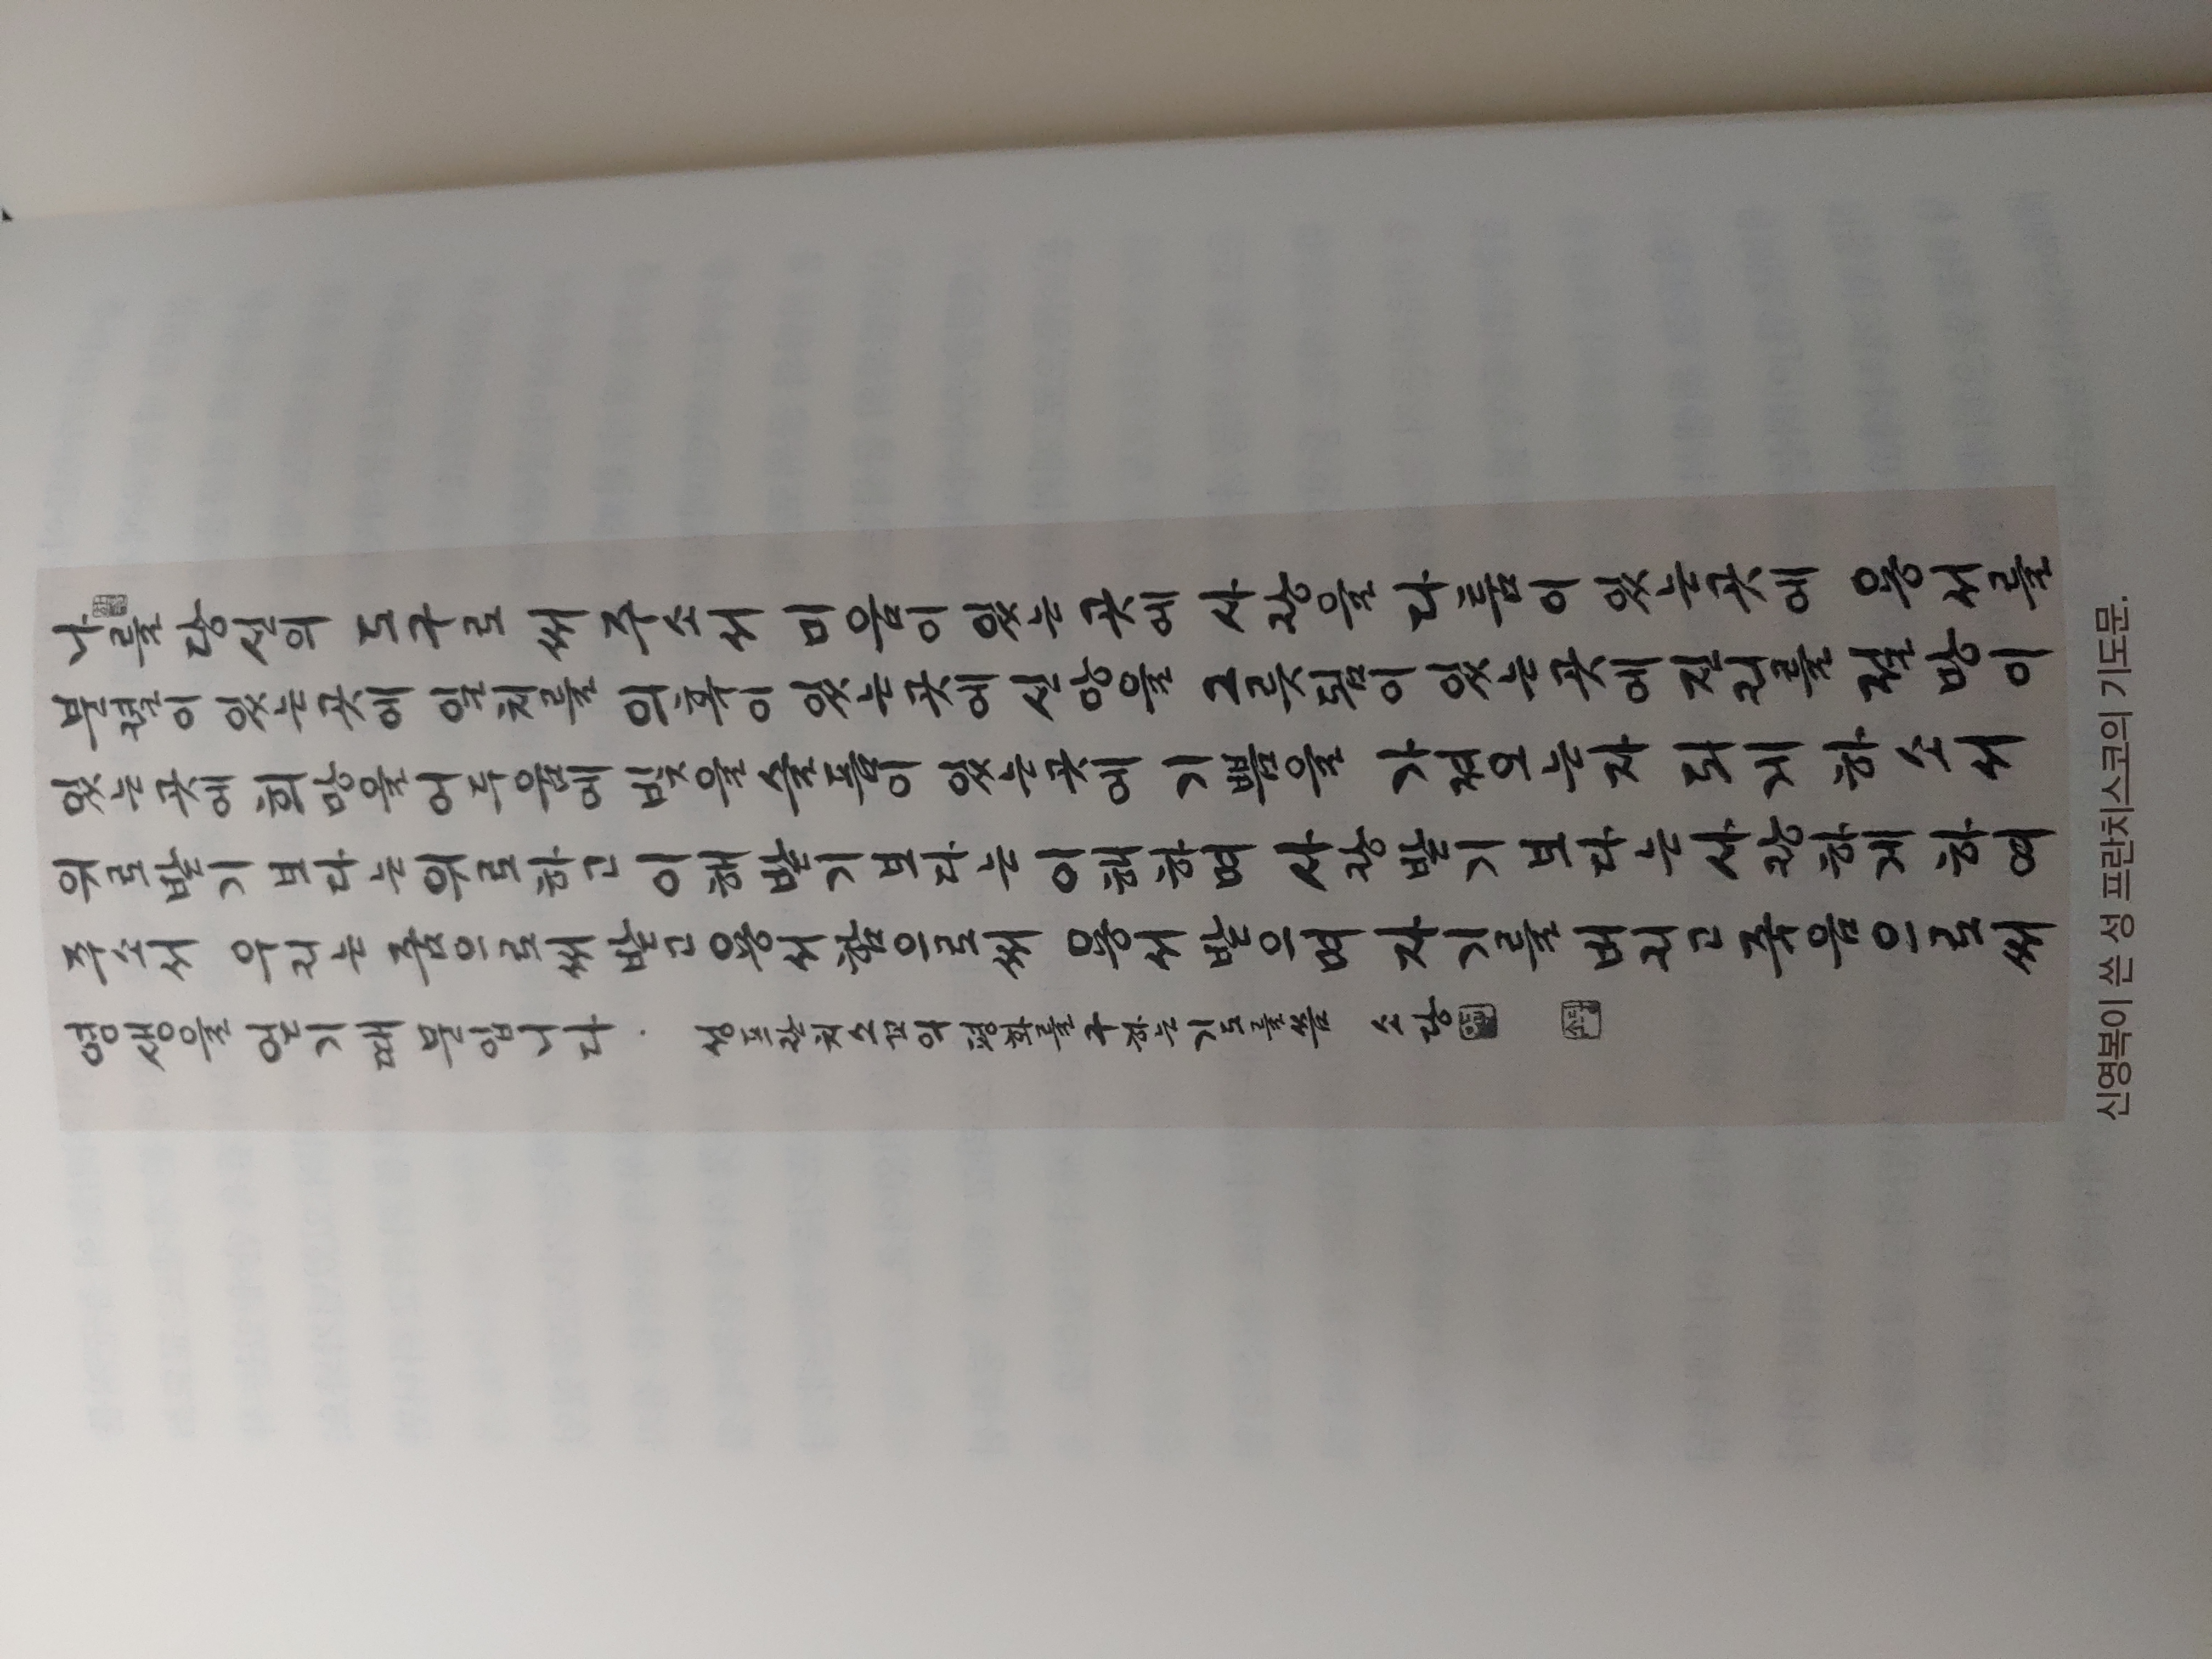 나를 당신의 도구로 써 주소서 미움이 있는 곳에 사랑을 다툼이 있는 곳에 용서를
분열이 있는 곳에 일치를 의혹이 있는 곳에 신앙을 그릇됨이 있는 곳에 진리를 절망이
있는 곳에 희망을 어두움에 빛을 슬픔이 있는 곳에 기쁨을 가져오는 자 되게 하소서
위로받기보다는 위로하고 이해받기보다는 이해하며 사랑받기보다는 사랑하게 하여
주소서 우리는 줌으로써 받고 용서함으로써 용서받으며 자기를 버리고 죽음으로써
영생을 얻기 때문입니다. 성 프란치스코의 평화를 구하는 기도를
신영복이 쓴 성 프란치스코의 기도문.